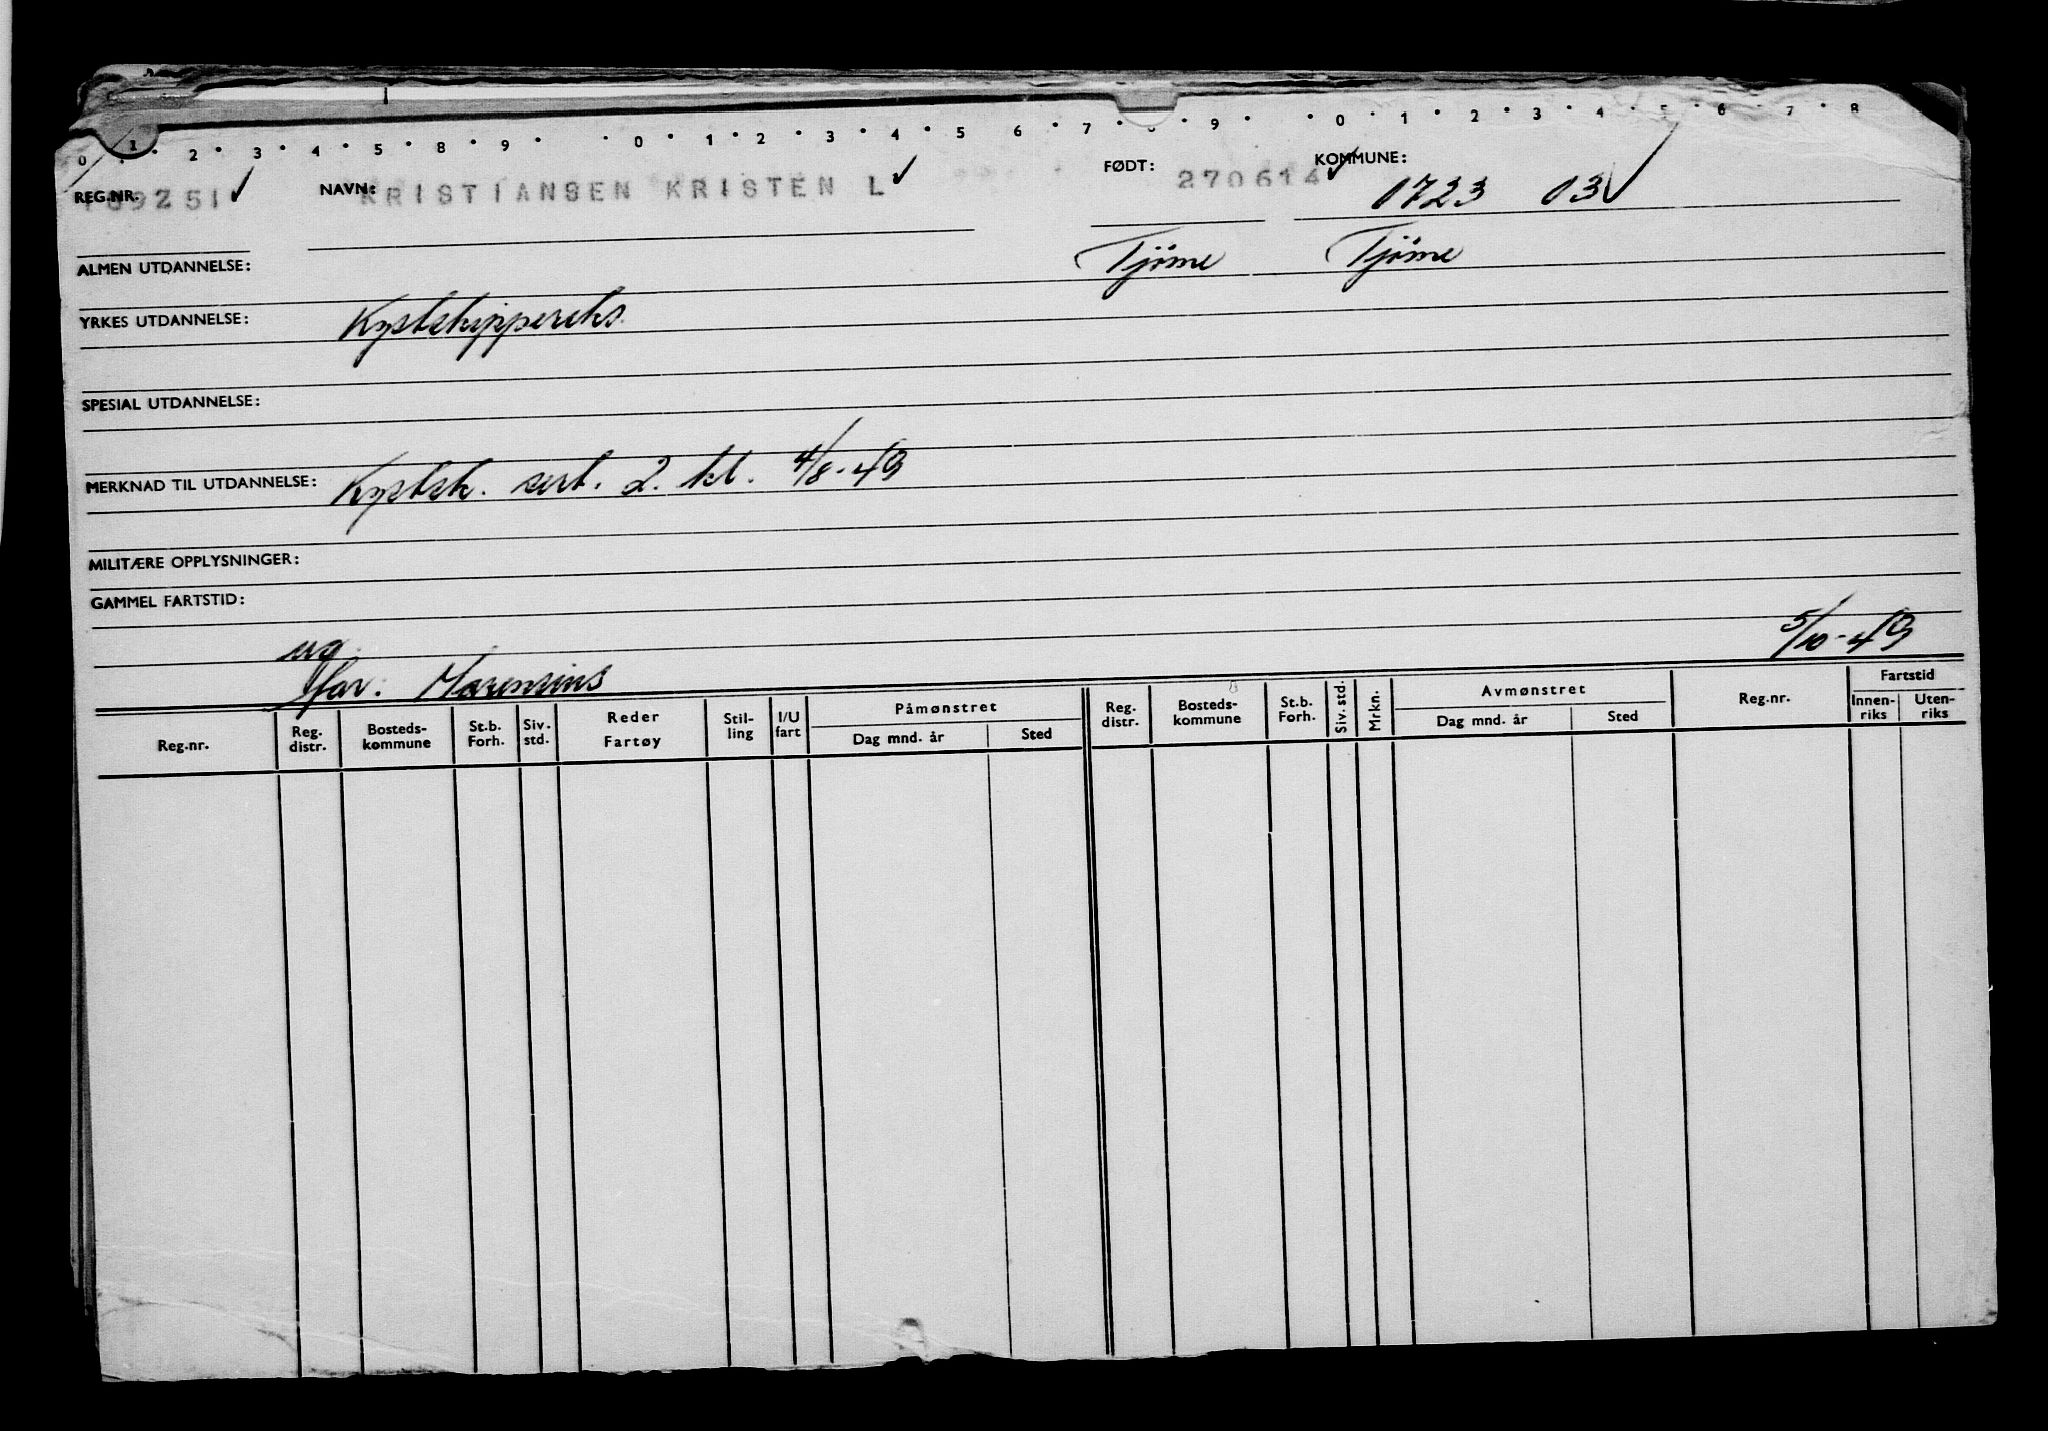 0 1 2 3 4 5 8 9 0 1 2 3 4 5 6 7 8 9 0 1 2 3 4 5 6 7 8
REG.NR. 109251 NAVN: KRISTIANSEN KRISTEN L FØDT: 270614 KOMMUNE: 0723 03
ALMEN UTDANNELSE: Tjöme Tjöme
YRKES UTDANNELSE: Kystskippereks.
SPESIAL UTDANNELSE:
MERKNAD TIL UTDANNELSE: Kystsk. sert. 2. kl. 4/8-49
MILITÆRE OPPLYSNINGER:
GAMMEL FARTSTID:
ug. 5/10-49
far: Marensius
Reg.nr. Reg. distr. Bosteds-kommune St.b. Forh. Siv. std. Reder Fartøy Stil-ling I/U fart Påmønstret Dag mnd. år Sted Reg. distr. Bosteds-kommune St.b. Forh. Siv. std. Mrkn. Avmønstret Dag mnd. år Sted Reg.nr. Fartstid Innen-riks Uten-riks